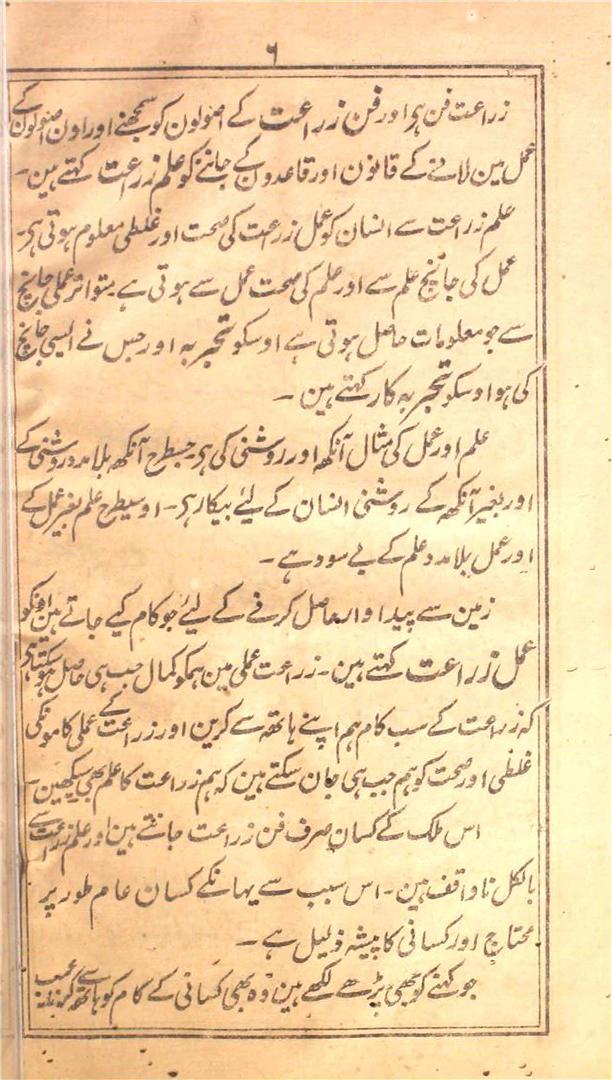 ۶
زراعت فن ہر اور فن زراعت کے اصولون کو سمجھنے اور اون اصولون کے
عمل مین لانے کے قانون اور قاعدون کے جاننے کو علم زراعت کہتے ہین۔
علم زراعت سے انسان کو عمل زراعت کی صحت اور غلطی معلوم ہوتی ہر۔
عمل کی جانچ علم سے اور علم کی صحت عمل سے ہوتی ہے۔ متواتر عملی جانچ
سے جو معلومات حاصل ہوتی ہے اوسکو تجربہ اور جس نے ایسی جانچ
کی ہو اوسکو تجربہ کار کہتے ہین ۔
علم اور عمل کی مثال آنکھ اور روشنی کی ہر۔ جسطرح آنکھ بلا مدد روشنی کے
اور بغیر آنکھ کے روشنی انسان کے لیئے بیکار ہر۔ اوسیطرح علم بغیر عمل کے
اور عمل بلا مدد علم کے بے سود ہے ۔
زمین سے پیداوار حاصل کرنے کے لیئے جو کام کیے جاتے ہین اونکو
عمل زراعت کہتے ہین۔ زراعت عملی مین ہمکو کمال جب ہی حاصل ہوسکتا ہر
کہ زراعت کے سب کام ہم اپنے ہاتھ سے کرین اور زراعت کے عملی کامونکی
غلطی اور صحت کو ہم جب ہی جان سکتے ہین کہ ہم زراعت کا علم بھی سیکھین۔
اس ملک کے کسان صرف فن زراعت جانتے ہین اور علم زراعت سے
بالکل ناواقف ہین۔ اس سبب سے یہانکے کسان عام طور پر
محتاج اور کسانی کا پیشہ ذلیل ہے ۔
جو کہنے کو بھی پڑھے لکھے ہین وہ بھی کسانی کے کام کو ہاتھ سے کرنا عیب